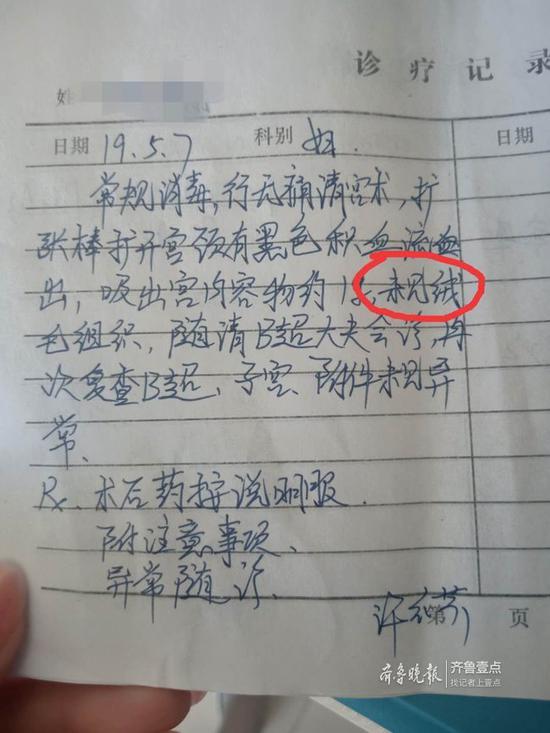 诊疗记录
姓
日期 19.5.7 科别 妇.
常规消毒,行无痛清宫术,扩
张棒扩开宫颈有黑色积血流
出,吸出宫内容物约1g,未见绒
毛组织,随请B超大夫会诊,再
次复查B超,子宫、附件未见异
常.
Rx. 术后药按说明服.
附注意事项.
异常随诊.
许 芬
第 页
齐鲁晚报 齐鲁壹点
找记者上壹点